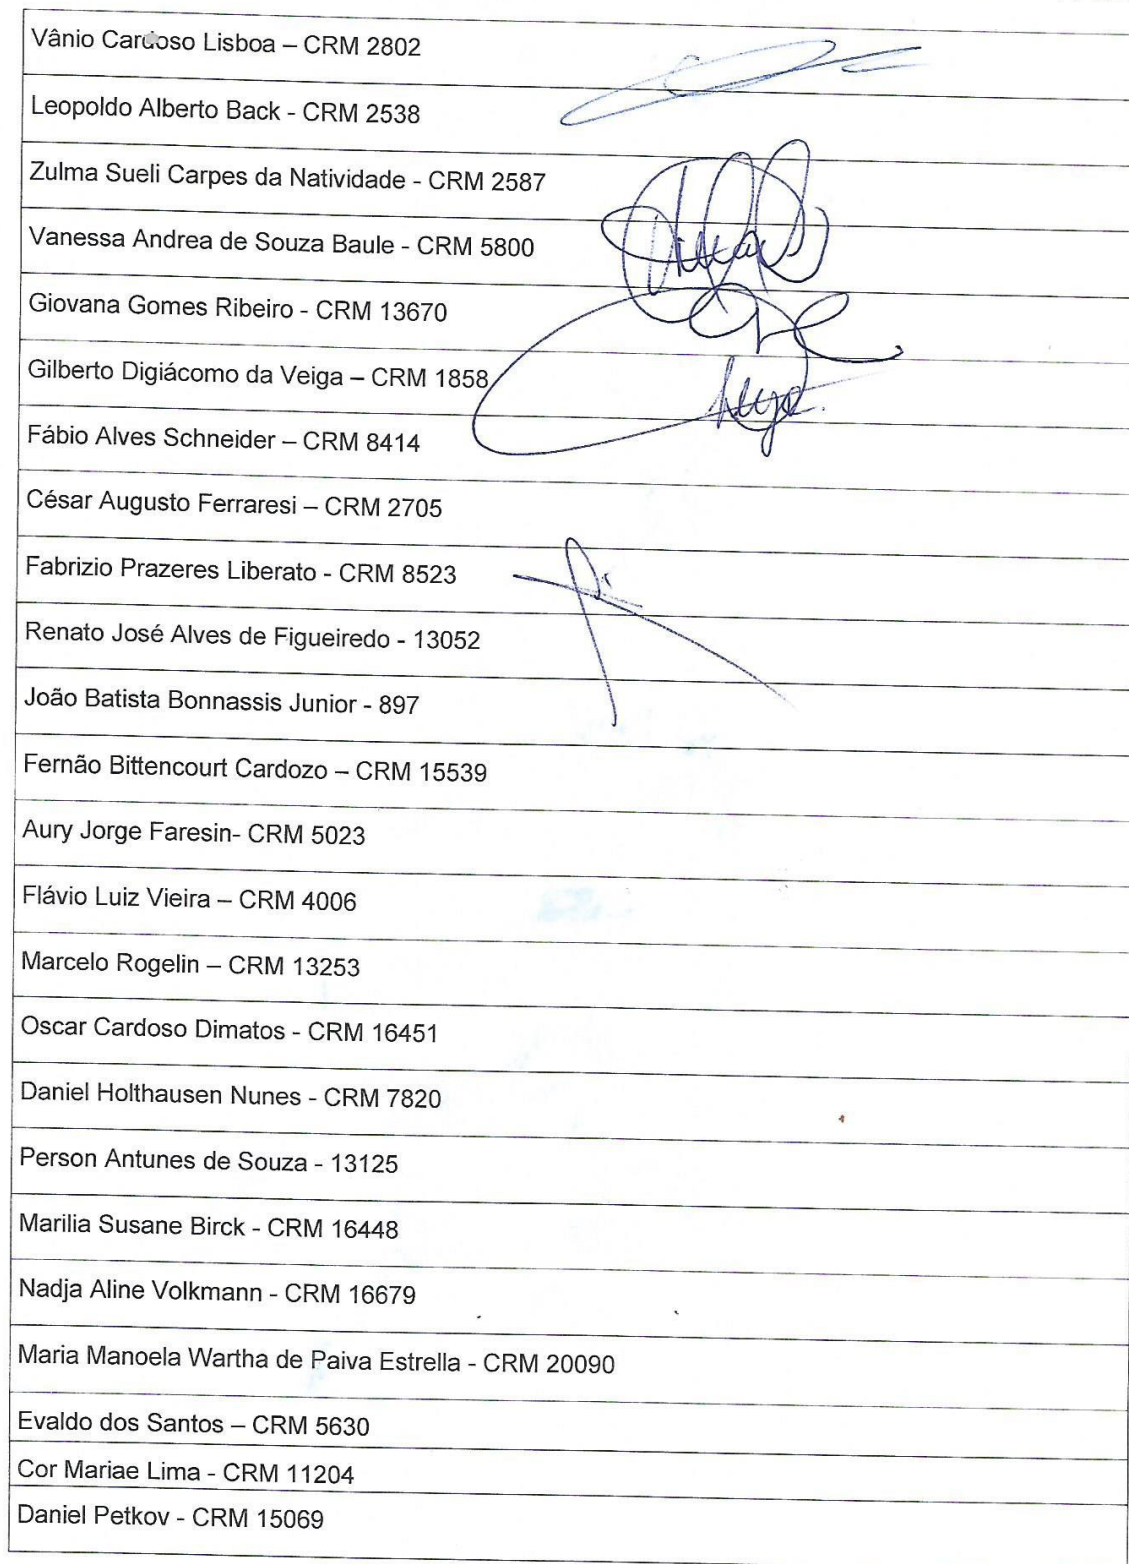 Vânio Cardoso Lisboa – CRM 2802
Leopoldo Alberto Back - CRM 2538
Zulma Sueli Carpes da Natividade - CRM 2587
Vanessa Andrea de Souza Baule - CRM 5800
Giovana Gomes Ribeiro - CRM 13670
Gilberto Digiácomo da Veiga – CRM 1858
Fábio Alves Schneider – CRM 8414
César Augusto Ferraresi – CRM 2705
Fabrizio Prazeres Liberato - CRM 8523
Renato José Alves de Figueiredo - 13052
João Batista Bonnassis Junior - 897
Fernão Bittencourt Cardozo – CRM 15539
Aury Jorge Faresin- CRM 5023
Flávio Luiz Vieira – CRM 4006
Marcelo Rogelin – CRM 13253
Oscar Cardoso Dimatos - CRM 16451
Daniel Holthausen Nunes - CRM 7820
Person Antunes de Souza - 13125
Marilia Susane Birck - CRM 16448
Nadja Aline Volkmann - CRM 16679
Maria Manoela Wartha de Paiva Estrella - CRM 20090
Evaldo dos Santos – CRM 5630
Cor Mariae Lima - CRM 11204
Daniel Petkov - CRM 15069